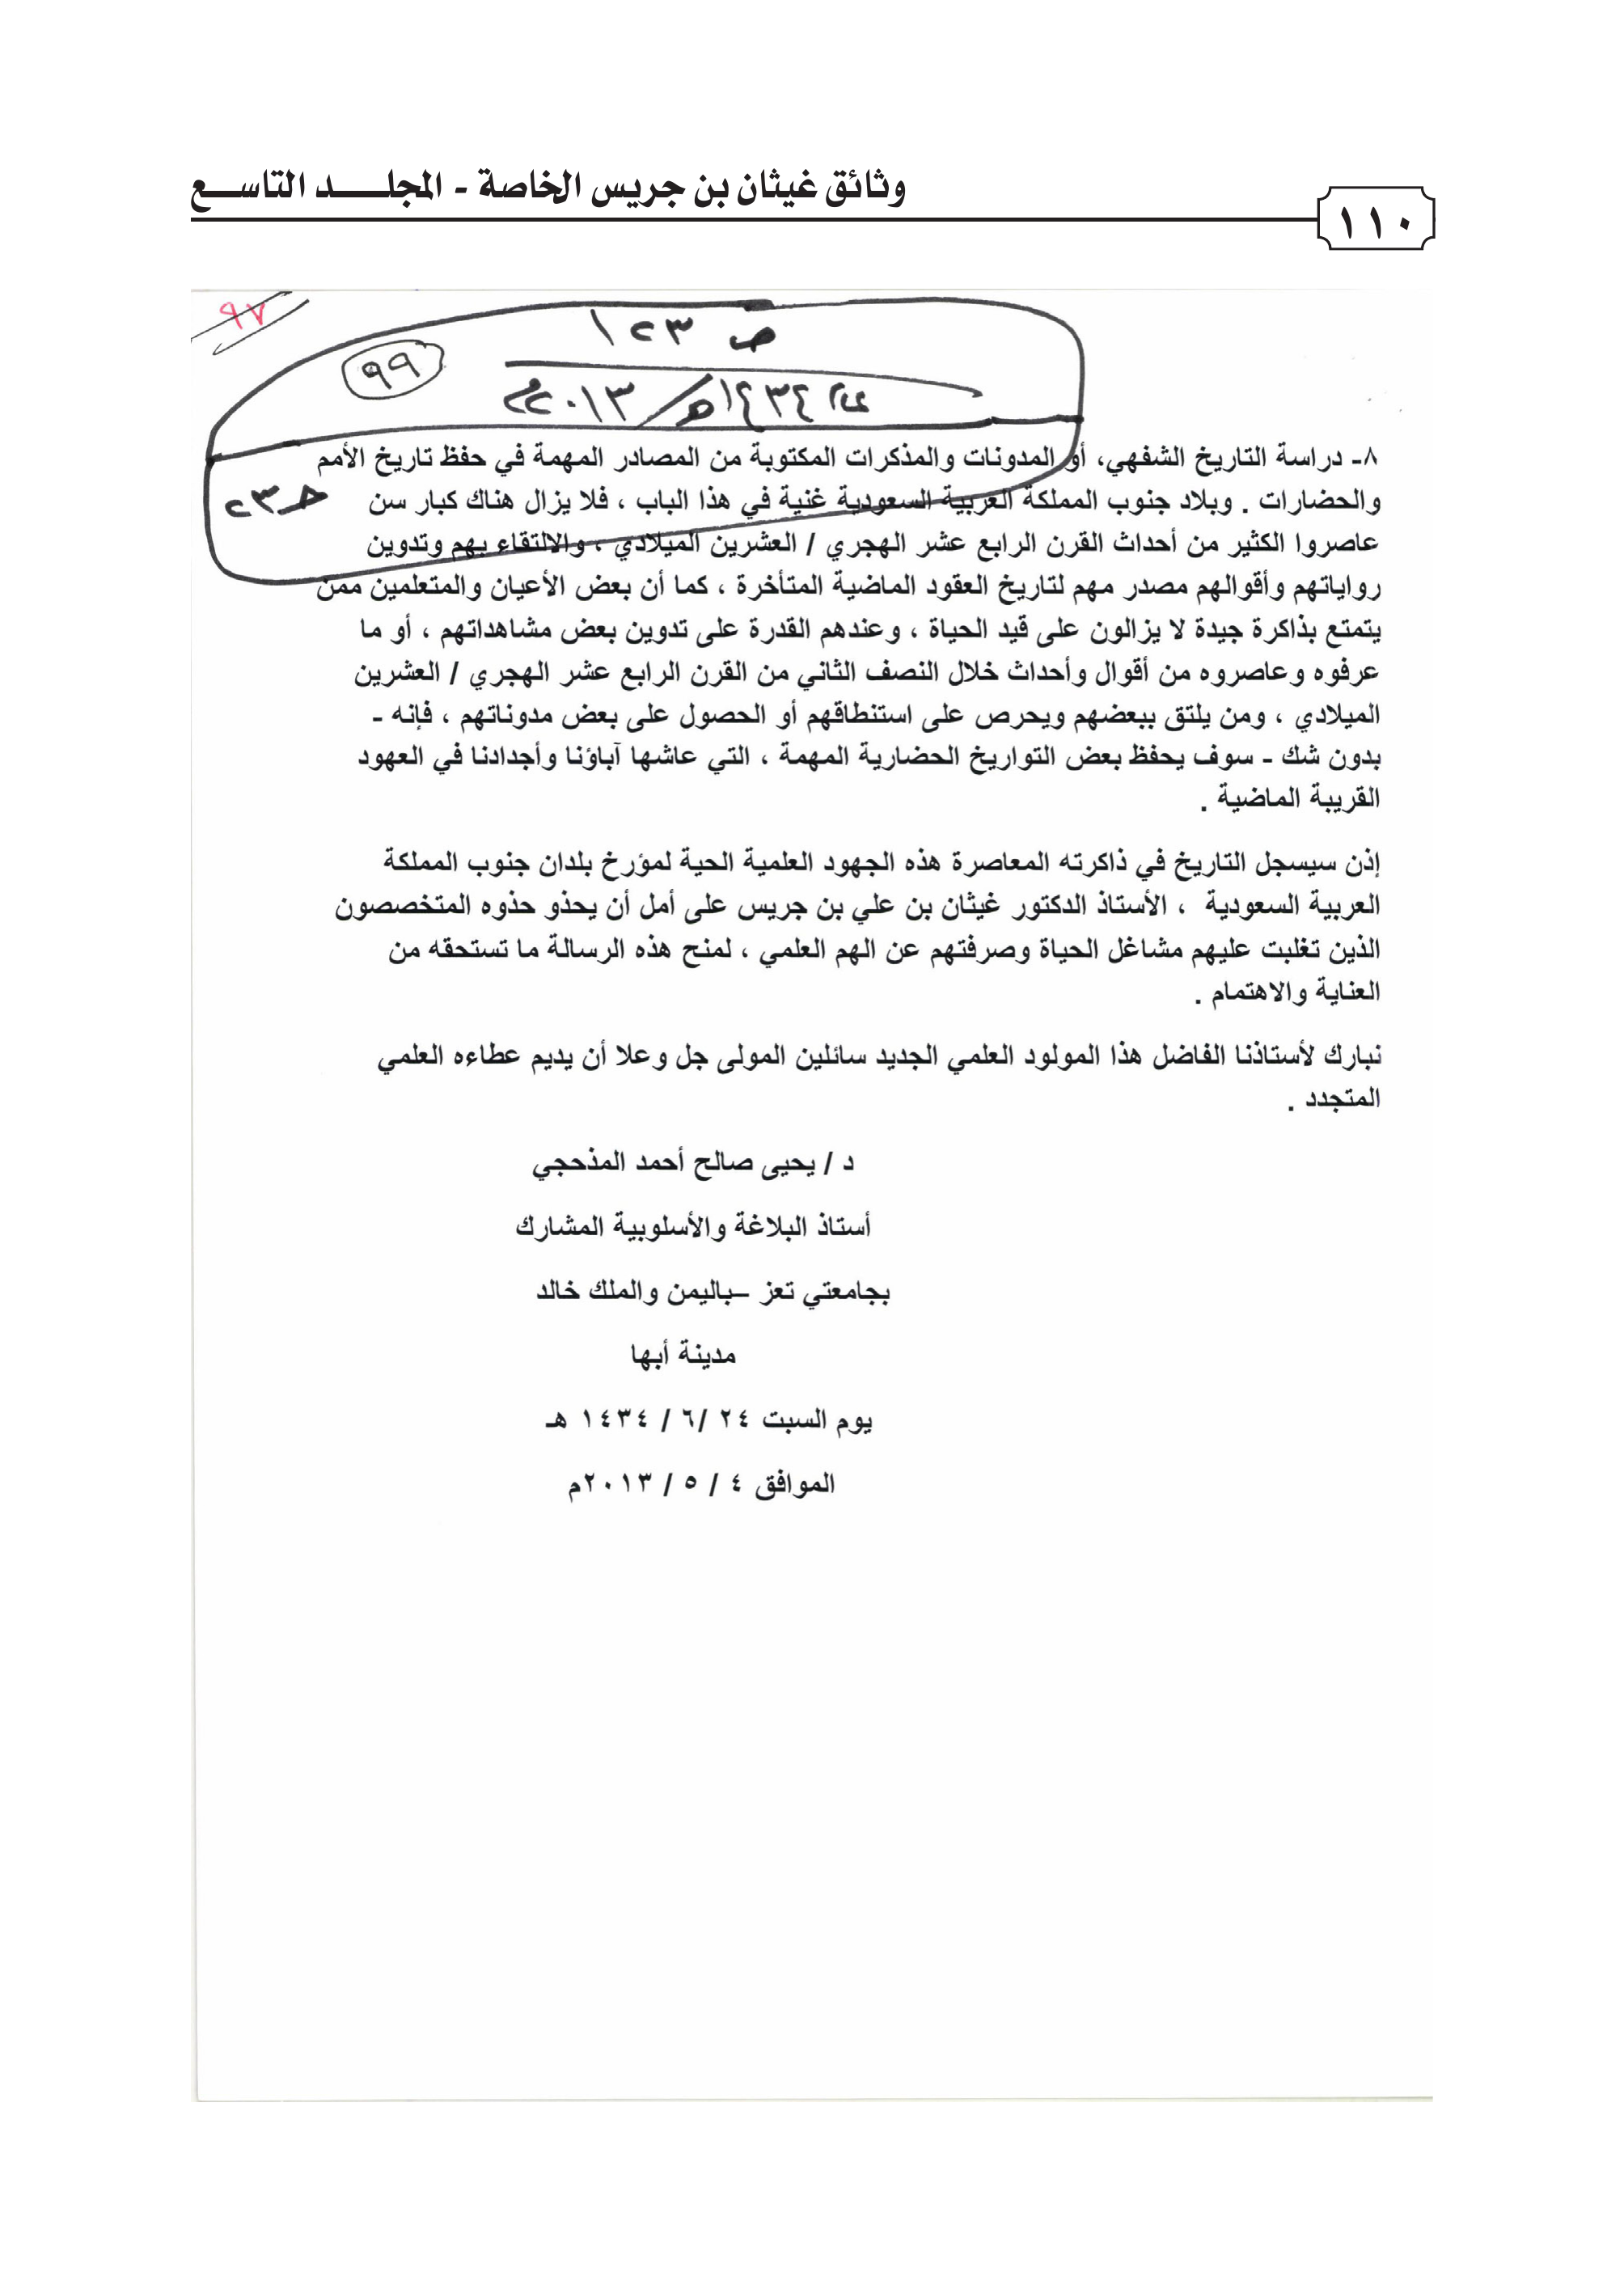 وثائق غيثان بن جريس الخاصة - المجلد التاسع
١١٠
٩٧
ص ١٢٣
٩٩
عام ١٤٣٤هـ/ ٢٠١٣م
حـ ٢٣
٨- دراسة التاريخ الشفهي، أو المدونات والمذكرات المكتوبة من المصادر المهمة في حفظ تاريخ الأمم
والحضارات . وبلاد جنوب المملكة العربية السعودية غنية في هذا الباب ، فلا يزال هناك كبار سن
عاصروا الكثير من أحداث القرن الرابع عشر الهجري / العشرين الميلادي ، والالتقاء بهم وتدوين
رواياتهم وأقوالهم مصدر مهم لتاريخ العقود الماضية المتأخرة ، كما أن بعض الأعيان والمتعلمين ممن
يتمتع بذاكرة جيدة لا يزالون على قيد الحياة ، وعندهم القدرة على تدوين بعض مشاهداتهم ، أو ما
عرفوه وعاصروه من أقوال وأحداث خلال النصف الثاني من القرن الرابع عشر الهجري / العشرين
الميلادي ، ومن يلتق ببعضهم ويحرص على استنطاقهم أو الحصول على بعض مدوناتهم ، فإنه -
بدون شك - سوف يحفظ بعض التواريخ الحضارية المهمة ، التي عاشها آباؤنا وأجدادنا في العهود
القريبة الماضية .
إذن سيسجل التاريخ في ذاكرته المعاصرة هذه الجهود العلمية الحية لمؤرخ بلدان جنوب المملكة
العربية السعودية ، الأستاذ الدكتور غيثان بن علي بن جريس على أمل أن يحذو حذوه المتخصصون
الذين تغلبت عليهم مشاغل الحياة وصرفتهم عن الهم العلمي ، لمنح هذه الرسالة ما تستحقه من
العناية والاهتمام .
نبارك لأستاذنا الفاضل هذا المولود العلمي الجديد سائلين المولى جل وعلا أن يديم عطاءه العلمي
المتجدد .
د / يحيى صالح أحمد المذحجي
أستاذ البلاغة والأسلوبية المشارك
بجامعتي تعز –باليمن والملك خالد
مدينة أبها
يوم السبت ٢٤ /٦ / ١٤٣٤ هـ
الموافق ٤ / ٥ / ٢٠١٣م